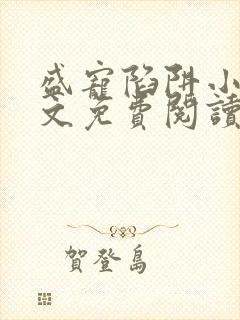 盛寵陷阱小
文免費閱讀
賀登島